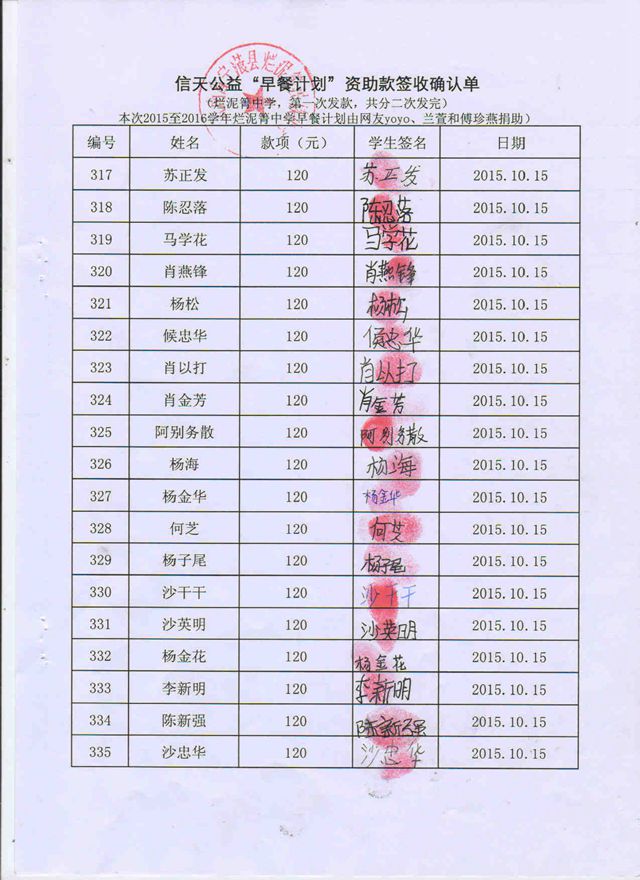 信天公益“早餐计划”资助款签收确认单
（烂泥箐中学，第一次发款，共分二次发完）
本次2015至2016学年烂泥箐中学早餐计划由网友yoyo、兰萱和傅珍燕捐助）
编号 姓名 款项（元） 学生签名 日期
317 苏正发 120 苏正发 2015.10.15
318 陈忍落 120 陈忍落 2015.10.15
319 马学花 120 马学花 2015.10.15
320 肖燕锋 120 肖燕锋 2015.10.15
321 杨松 120 杨松 2015.10.15
322 候忠华 120 侯忠华 2015.10.15
323 肖以打 120 肖以打 2015.10.15
324 肖金芳 120 肖金芳 2015.10.15
325 阿别务散 120 阿别务散 2015.10.15
326 杨海 120 杨海 2015.10.15
327 杨金华 120 杨金华 2015.10.15
328 何芝 120 何芝 2015.10.15
329 杨子尾 120 杨子尾 2015.10.15
330 沙干干 120 沙干干 2015.10.15
331 沙英明 120 沙英明 2015.10.15
332 杨金花 120 杨金花 2015.10.15
333 李新明 120 李新明 2015.10.15
334 陈新强 120 陈新强 2015.10.15
335 沙忠华 120 沙忠华 2015.10.15